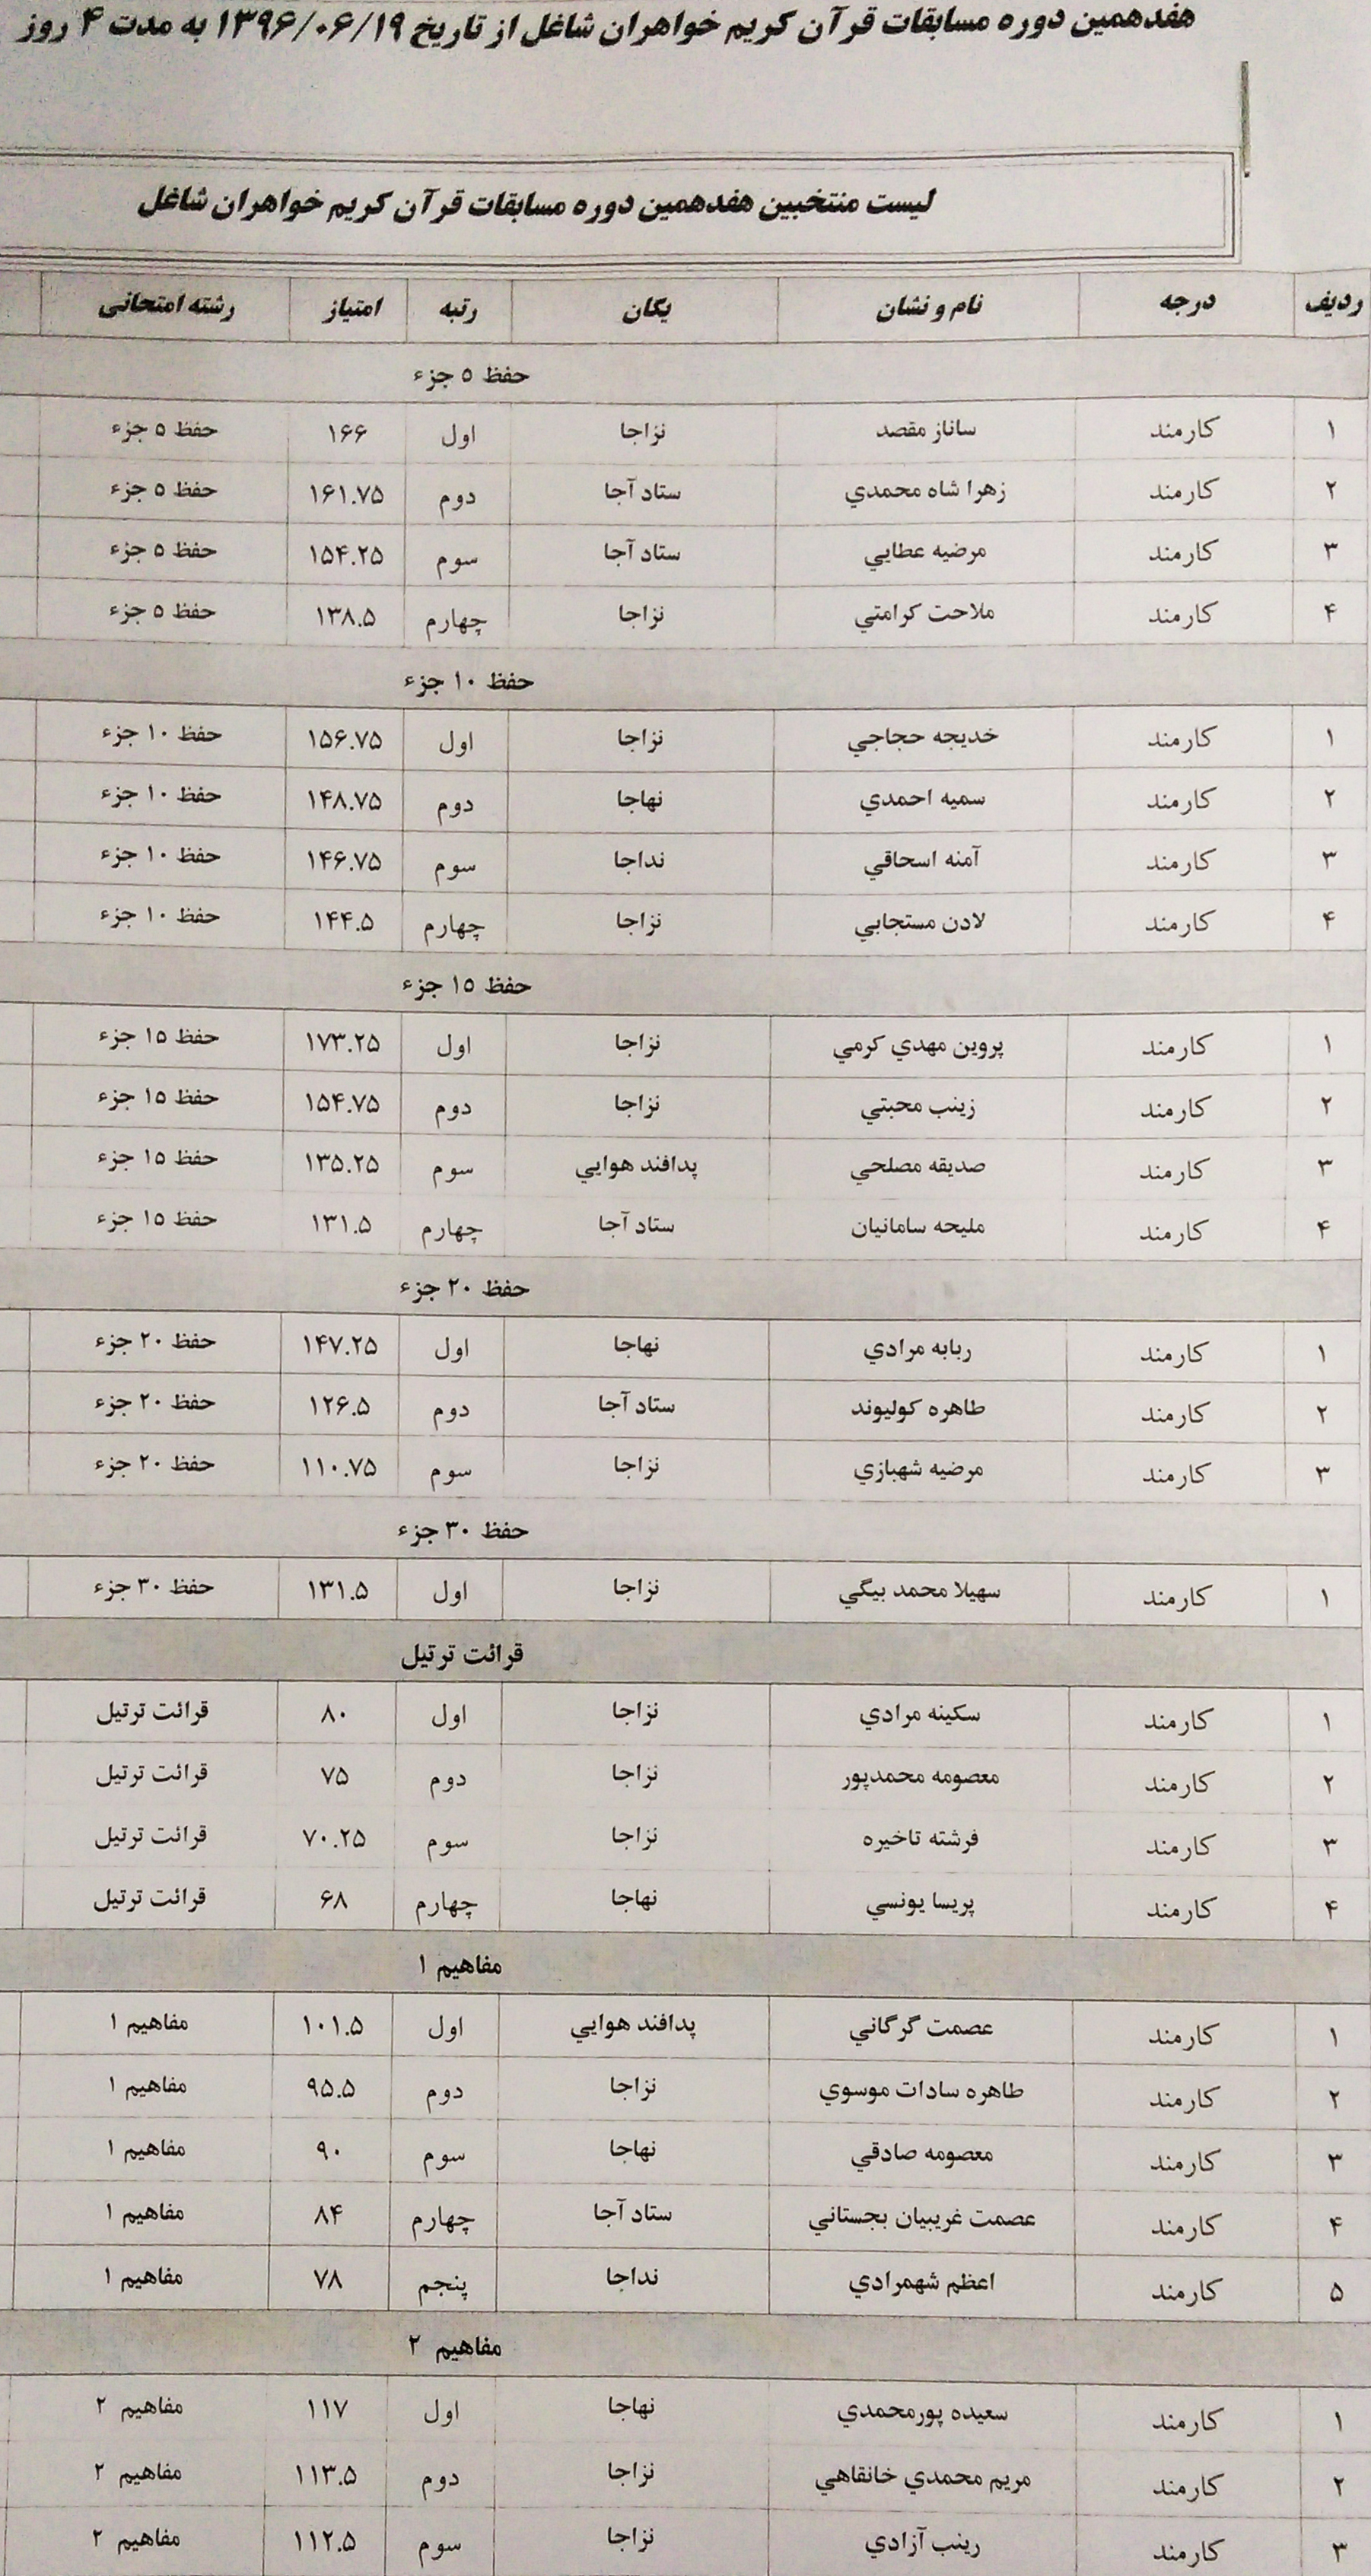 هفدهمین دوره مسابقات قرآن کریم خواهران شاغل از تاریخ ۱۳۹۶/۰۶/۱۹ به مدت ۴ روز
لیست منتخبین هفدهمین دوره مسابقات قرآن کریم خواهران شاغل
ردیف درجه نام و نشان یگان رتبه امتیاز رشته امتحانی
حفظ ۵ جزء
۱ کارمند ساناز مقصد نزاجا اول ۱۶۶ حفظ ۵ جزء
۲ کارمند زهرا شاه محمدي ستاد آجا دوم ۱۶۱.۷۵ حفظ ۵ جزء
۳ کارمند مرضیه عطایي ستاد آجا سوم ۱۵۴.۲۵ حفظ ۵ جزء
۴ کارمند ملاحت کرامتي نزاجا چهارم ۱۳۸.۵ حفظ ۵ جزء
حفظ ۱۰ جزء
۱ کارمند خدیجه حجاجي نزاجا اول ۱۵۶.۷۵ حفظ ۱۰ جزء
۲ کارمند سمیه احمدي نهاجا دوم ۱۴۸.۷۵ حفظ ۱۰ جزء
۳ کارمند آمنه اسحاقي نداجا سوم ۱۴۶.۷۵ حفظ ۱۰ جزء
۴ کارمند لادن مستجابي نزاجا چهارم ۱۴۴.۵ حفظ ۱۰ جزء
حفظ ۱۵ جزء
۱ کارمند پروین مهدي کرمي نزاجا اول ۱۷۳.۲۵ حفظ ۱۵ جزء
۲ کارمند زینب محبتي نزاجا دوم ۱۵۴.۷۵ حفظ ۱۵ جزء
۳ کارمند صدیقه مصلحي پدافند هوایي سوم ۱۳۵.۲۵ حفظ ۱۵ جزء
۴ کارمند ملیحه سامانیان ستاد آجا چهارم ۱۳۱.۵ حفظ ۱۵ جزء
حفظ ۲۰ جزء
۱ کارمند ربابه مرادي نهاجا اول ۱۴۷.۲۵ حفظ ۲۰ جزء
۲ کارمند طاهره کولیوند ستاد آجا دوم ۱۲۶.۵ حفظ ۲۰ جزء
۳ کارمند مرضیه شهبازي نزاجا سوم ۱۱۰.۷۵ حفظ ۲۰ جزء
حفظ ۳۰ جزء
۱ کارمند سهیلا محمد بیگي نزاجا اول ۱۳۱.۵ حفظ ۳۰ جزء
قرائت ترتیل
۱ کارمند سکینه مرادي نزاجا اول ۸۰ قرائت ترتیل
۲ کارمند معصومه محمدپور نزاجا دوم ۷۵ قرائت ترتیل
۳ کارمند فرشته تاخیره نزاجا سوم ۷۰.۲۵ قرائت ترتیل
۴ کارمند پریسا یونسي نهاجا چهارم ۶۸ قرائت ترتیل
مفاهیم ۱
۱ کارمند عصمت گرگاني پدافند هوایي اول ۱۰۱.۵ مفاهیم ۱
۲ کارمند طاهره سادات موسوي نزاجا دوم ۹۵.۵ مفاهیم ۱
۳ کارمند معصومه صادقي نهاجا سوم ۹۰ مفاهیم ۱
۴ کارمند عصمت غریبیان بجستاني ستاد آجا چهارم ۸۴ مفاهیم ۱
۵ کارمند اعظم شهمرادي نداجا پنجم ۷۸ مفاهیم ۱
مفاهیم ۲
۱ کارمند سعیده پورمحمدي نهاجا اول ۱۱۷ مفاهیم ۲
۲ کارمند مریم محمدي خانقاهي نزاجا دوم ۱۱۳.۵ مفاهیم ۲
۳ کارمند رینب آزادي نزاجا سوم ۱۱۲.۵ مفاهیم ۲